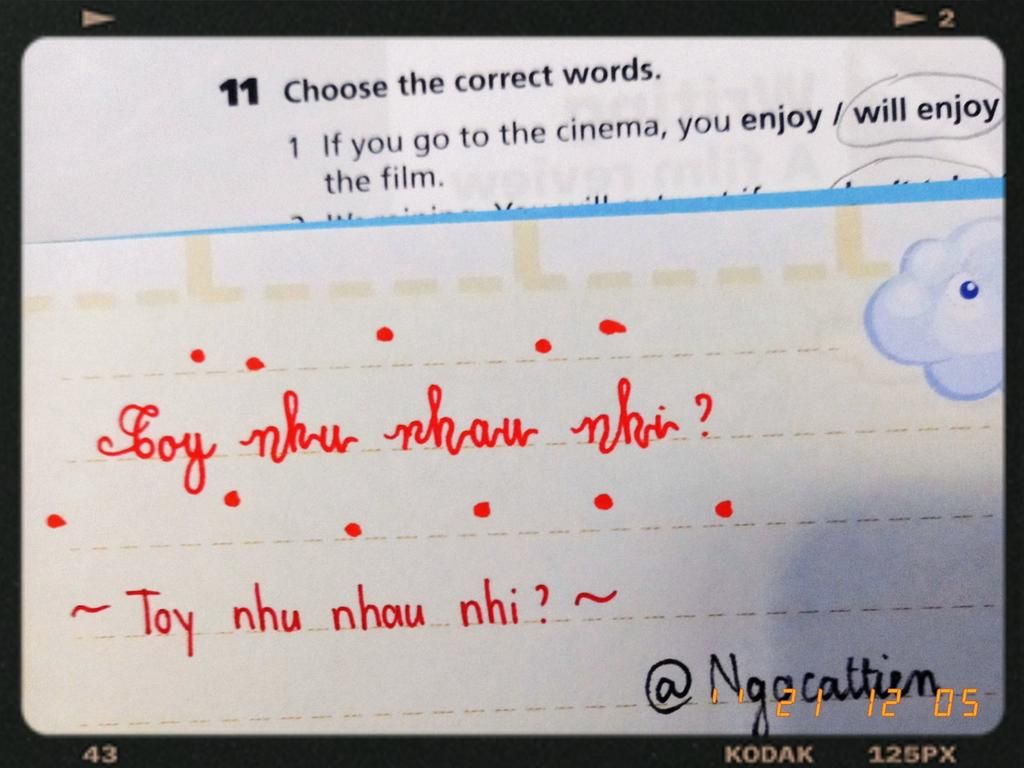 2
11 Choose the correct words.
1 If you go to the cinema, you enjoy / will enjoy
the film.
Toy nhu nhau nhi?
~ Toy nhu nhau nhi? ~
@Ngocattien
'' 21 12 05
43 KODAK 125PX